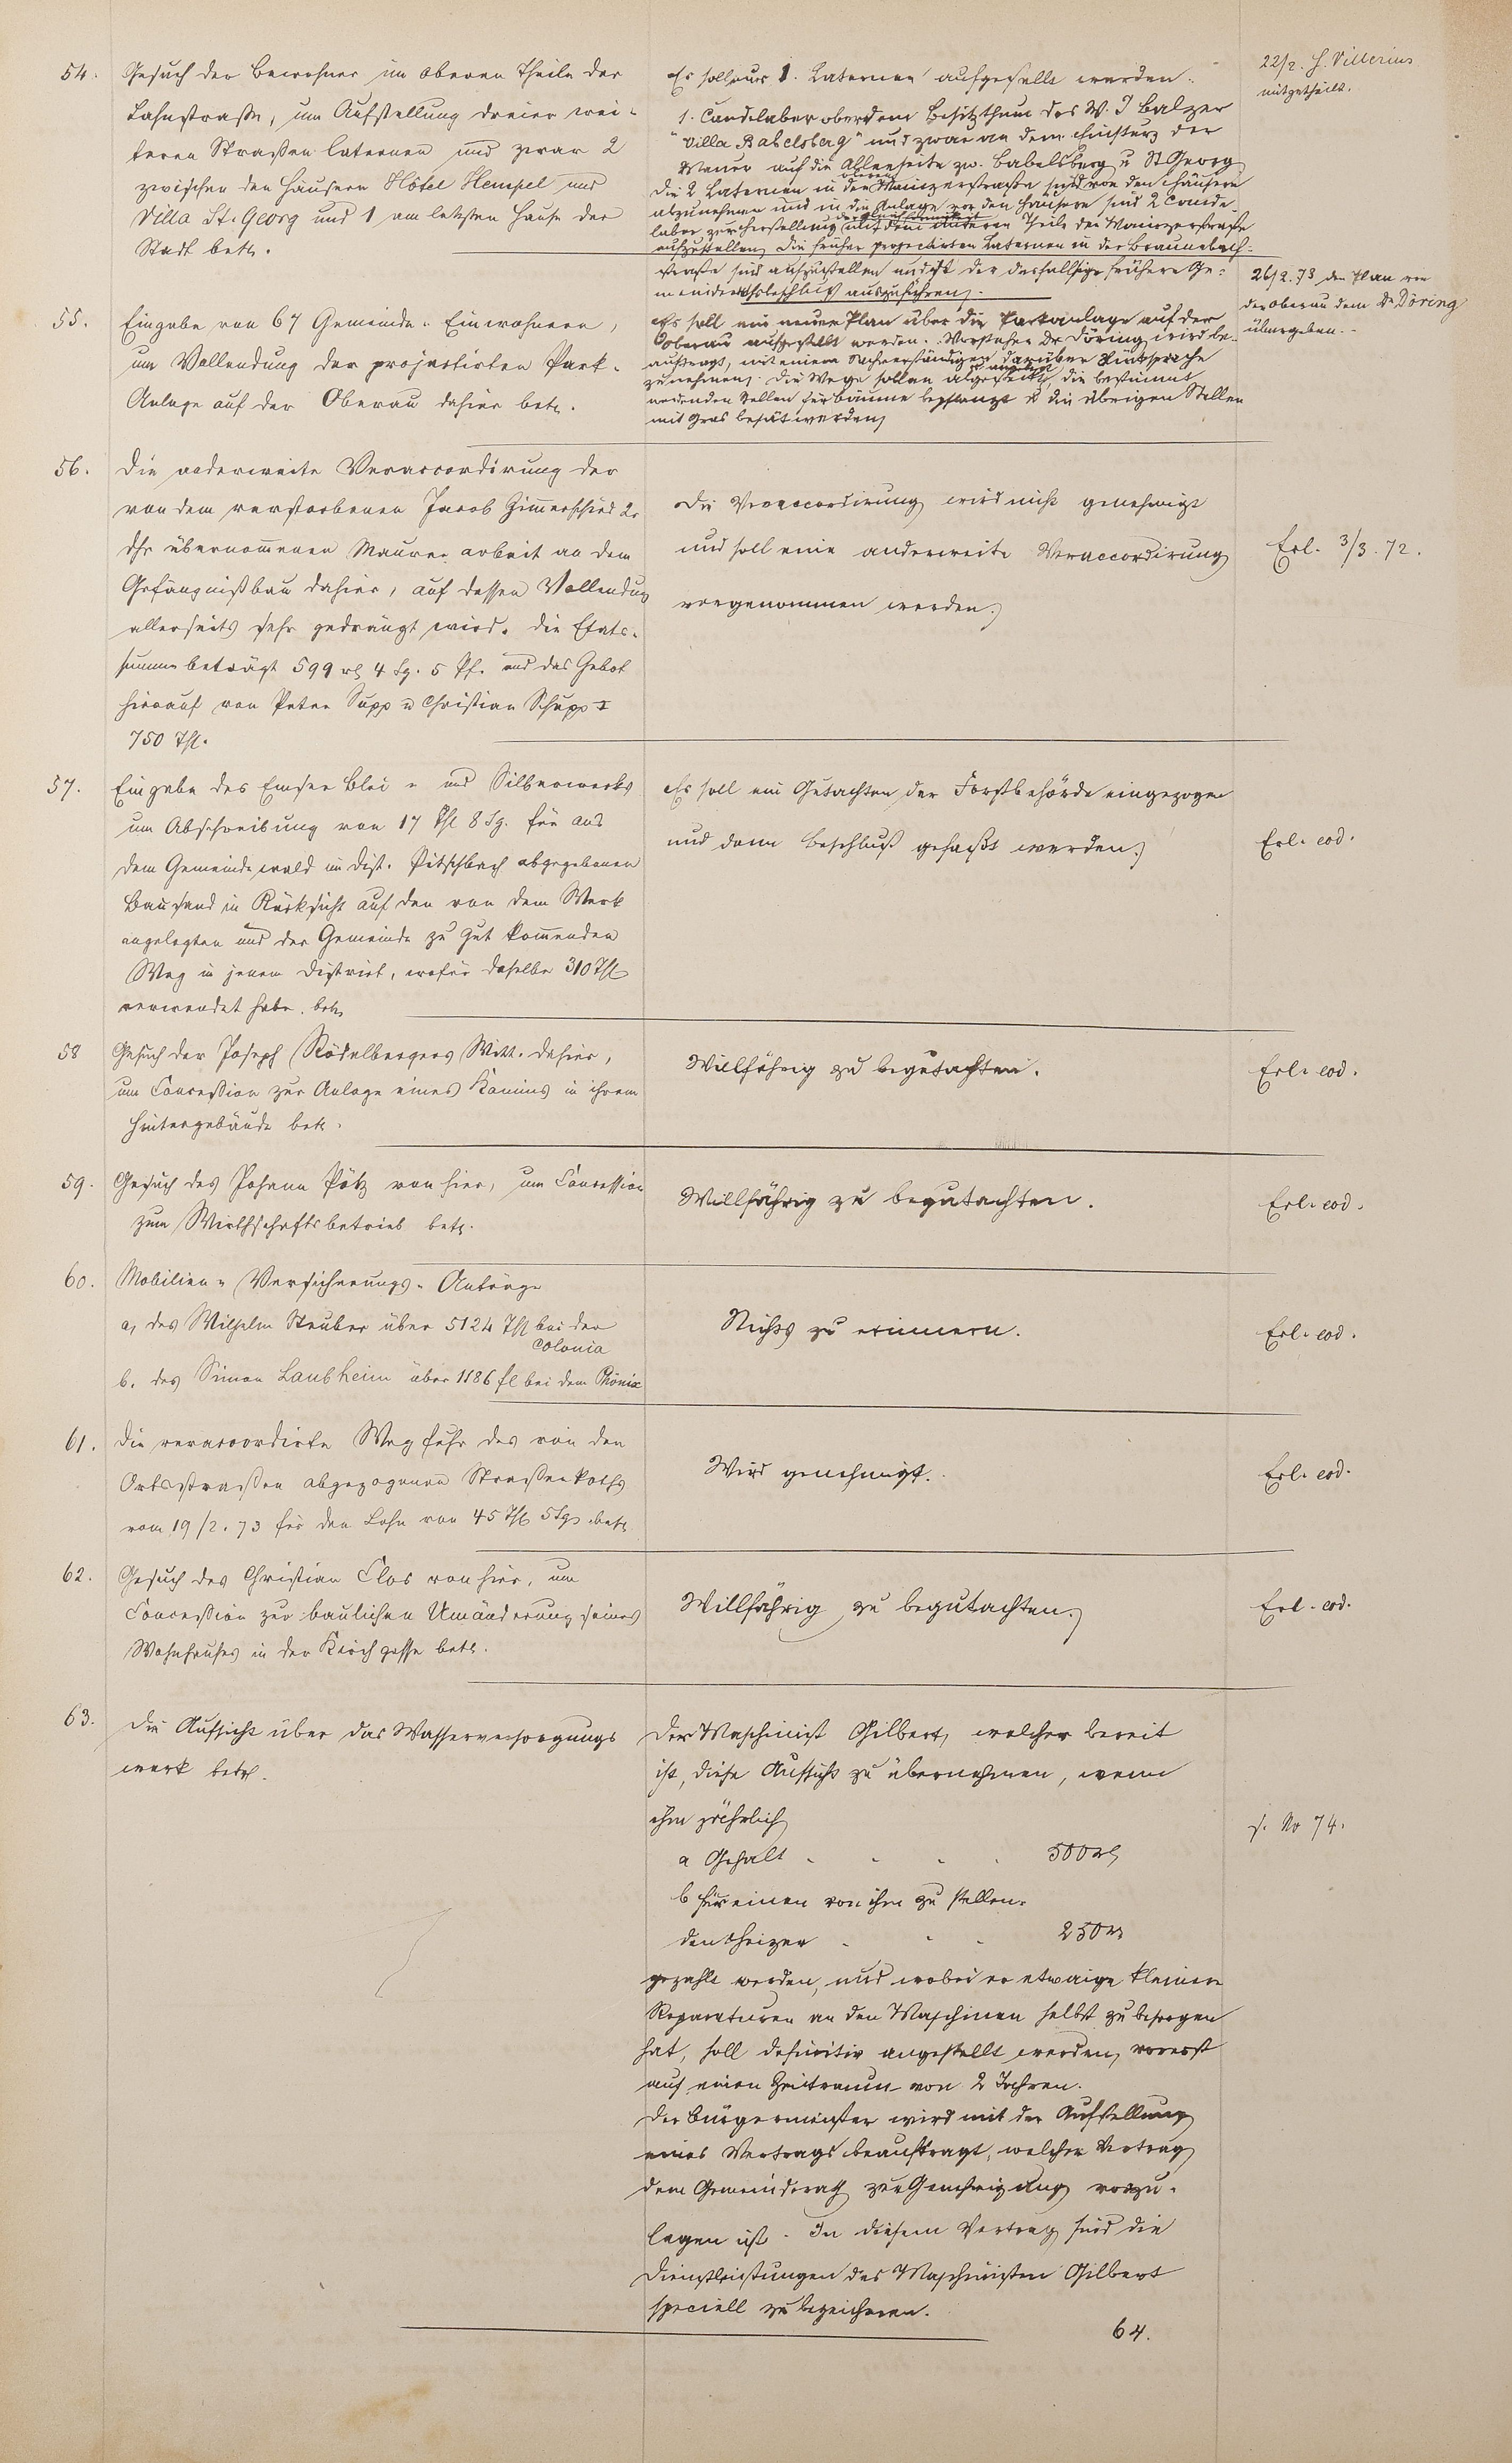 54.
Gesuch der Bewohner im oberen Theile der
Lahnstraße, um Aufstellung dreier wei-
teren Straßenlaternen und zwar 2
zwischen den Häusern Hôtel Hempel und
Villa St. Georg und 1 am letzten Hause der
Stadt betr.
Es soll nur 1. Laternen aufgestellt werden.
1. Candelaber ober dem Besitzthum des W. J Balzer
"Villa Babelsberg" und zwar an dem der
Mauer auf die Alleenseite zw. Babelsberg u St Georg
oberen
Die 2 Laternen in der Mainzerstraße sind von den Häusern
abzunehmen und in die Anlage vor den Häusern sind 2 Cande-
laber zur Herstellung mit dem anderen Theile der Mainzerstraße
aufzustellen. Die früher projectirten Laternen in der Braunebach-
straße sind aufzustellen und ist der desfallsige frühere Ge-
meinderathsbeschluß auszuführen.
22/2. H. Vitterius
mitgetheilt.
55.
Eingabe von 67 Gemeinde-Einwohnern,
um Vollendung der projectirten Park-
Anlage auf der Oberau dahier betr.
Es soll ein neuer Plan über die Parkanlage auf der
Oberau aufgestellt werden. Vorsteher Dr Döring wird be-
auftragt, mit einem Sachverständigen darüber Rücksprache
zu nehmen. Die Wege sollen abgesteckt, die bestimmt
werdenden Stellen für Bäume bepflanzt & die übrigen Stellen
mit Gras besät werden
26/2. 73 den Plan von
der Oberau dem Dr. Döring
übergeben.
56.
Die anderweite Veraccordirung der
von dem verstorbenen Jacob Zimmerschied 2r
dhr übernommenen Maurerarbeit an dem
Gefängnißbau dahier, auf dessen Vollendung
allerseits sehr gedrängt wird. Die Etats-
summe beträgt 599 rl 4 Sg. 5 Pf. und das Gebot
hierauf von Peter Supp u Christian Schupp I
750 Thl.
Die Veraccordirung wird nicht genehmigt
und soll eine anderweite Veraccordirung
vorgenommen werden.
Erl. 3/3. 72.
57.
Eingabe des Emser Blei- und Silberwerks
um Abschreibung von 17 Thl 8 Sg. für aus
dem Gemeindewald im Dist. Pitschbach abgegebenen
Bausand in Rücksicht auf den von dem Werk
angelegten und der Gemeinde zu gut kommenden
Weg in jenem District, wofür dasselbe 310 Thl
verwendet habe. betr
Es soll ein Gutachten der Forstbehörde eingezogen
und dann Beschluß gefaßt werden.
Erl. eod.
58
Gesuch der Joseph Rödelbergers Witt. dahier,
um Concession zur Anlage eines Kamins in ihrem
Hintergebäude betr.
Willfährig zu begutachten.
Erl. eod.
59.
Gesuch des Johann Pötz von hier, um Concession
zum Wirthschaftsbetrieb betr.
Willfährig zu begutachten.
Erl. eod.
60.
Mobilien-Versicherungs-Anträge
a, des Wilhelm Steuber über 5124 Thl bei der
Colonia
b. des Simon Laubheim über 1186 fl bei dem Phönix
Nichts zu erinnern.
Erl. eod.
61.
Die veraccordirte Wegfuhr des von den
Ortsstraßen abgezogenen Straßenkoths
vom 19/2. 73 für den Lohn von 45 Thl 5 Sgr betr
Wird genehmigt.
Erl. eod.
62.
Gesuch des Christian Clos von hier, um
Concession zur baulichen Umänderung seines
Wohnhauses in der Kirchgasse betr.
Willfährig zu begutachten.
Erl. eod.
63.
Die Aufsicht über das Wasserversorgungs
werk betr.
Der Maschinist Gilbert, welcher bereit
ist, diese Aufsicht zu übernehmen, wenn
ihm jährlich
a Gehalt . . . . 500 rl
b für einen von ihm zu stellen-
den Heizer . . . 250 rl
gezahlt werden, und wobei er etwaige kleinere
Reparaturen an den Maschinen selbst zu besorgen
hat, soll definitiv angestellt werden, vorerst
auf einen Zeitraum von 2 Jahren.
Der Bürgermeister wird mit der Aufstellung
eines Vertrags beauftragt, welcher Vertrag
dem Gemeinderath zur Genehmigung vorzu-
legen ist. In diesem Vertrag sind die
Dienstleistungen des Maschinisten Gilbert
speciell zu bezeichnen.
s. No 74.
64.